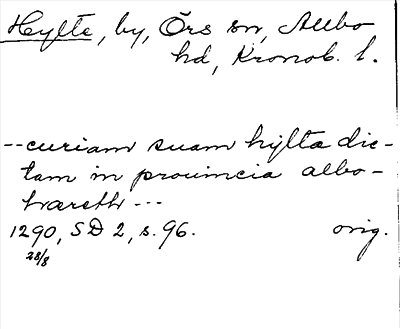 Hylte, by, Örs sn, Allbo
hd, Kronob. l.
--curiam suam hylta dic-
tam in prouincia albo-
hæreth ---
1290, SD 2, s. 96. orig.
28/8